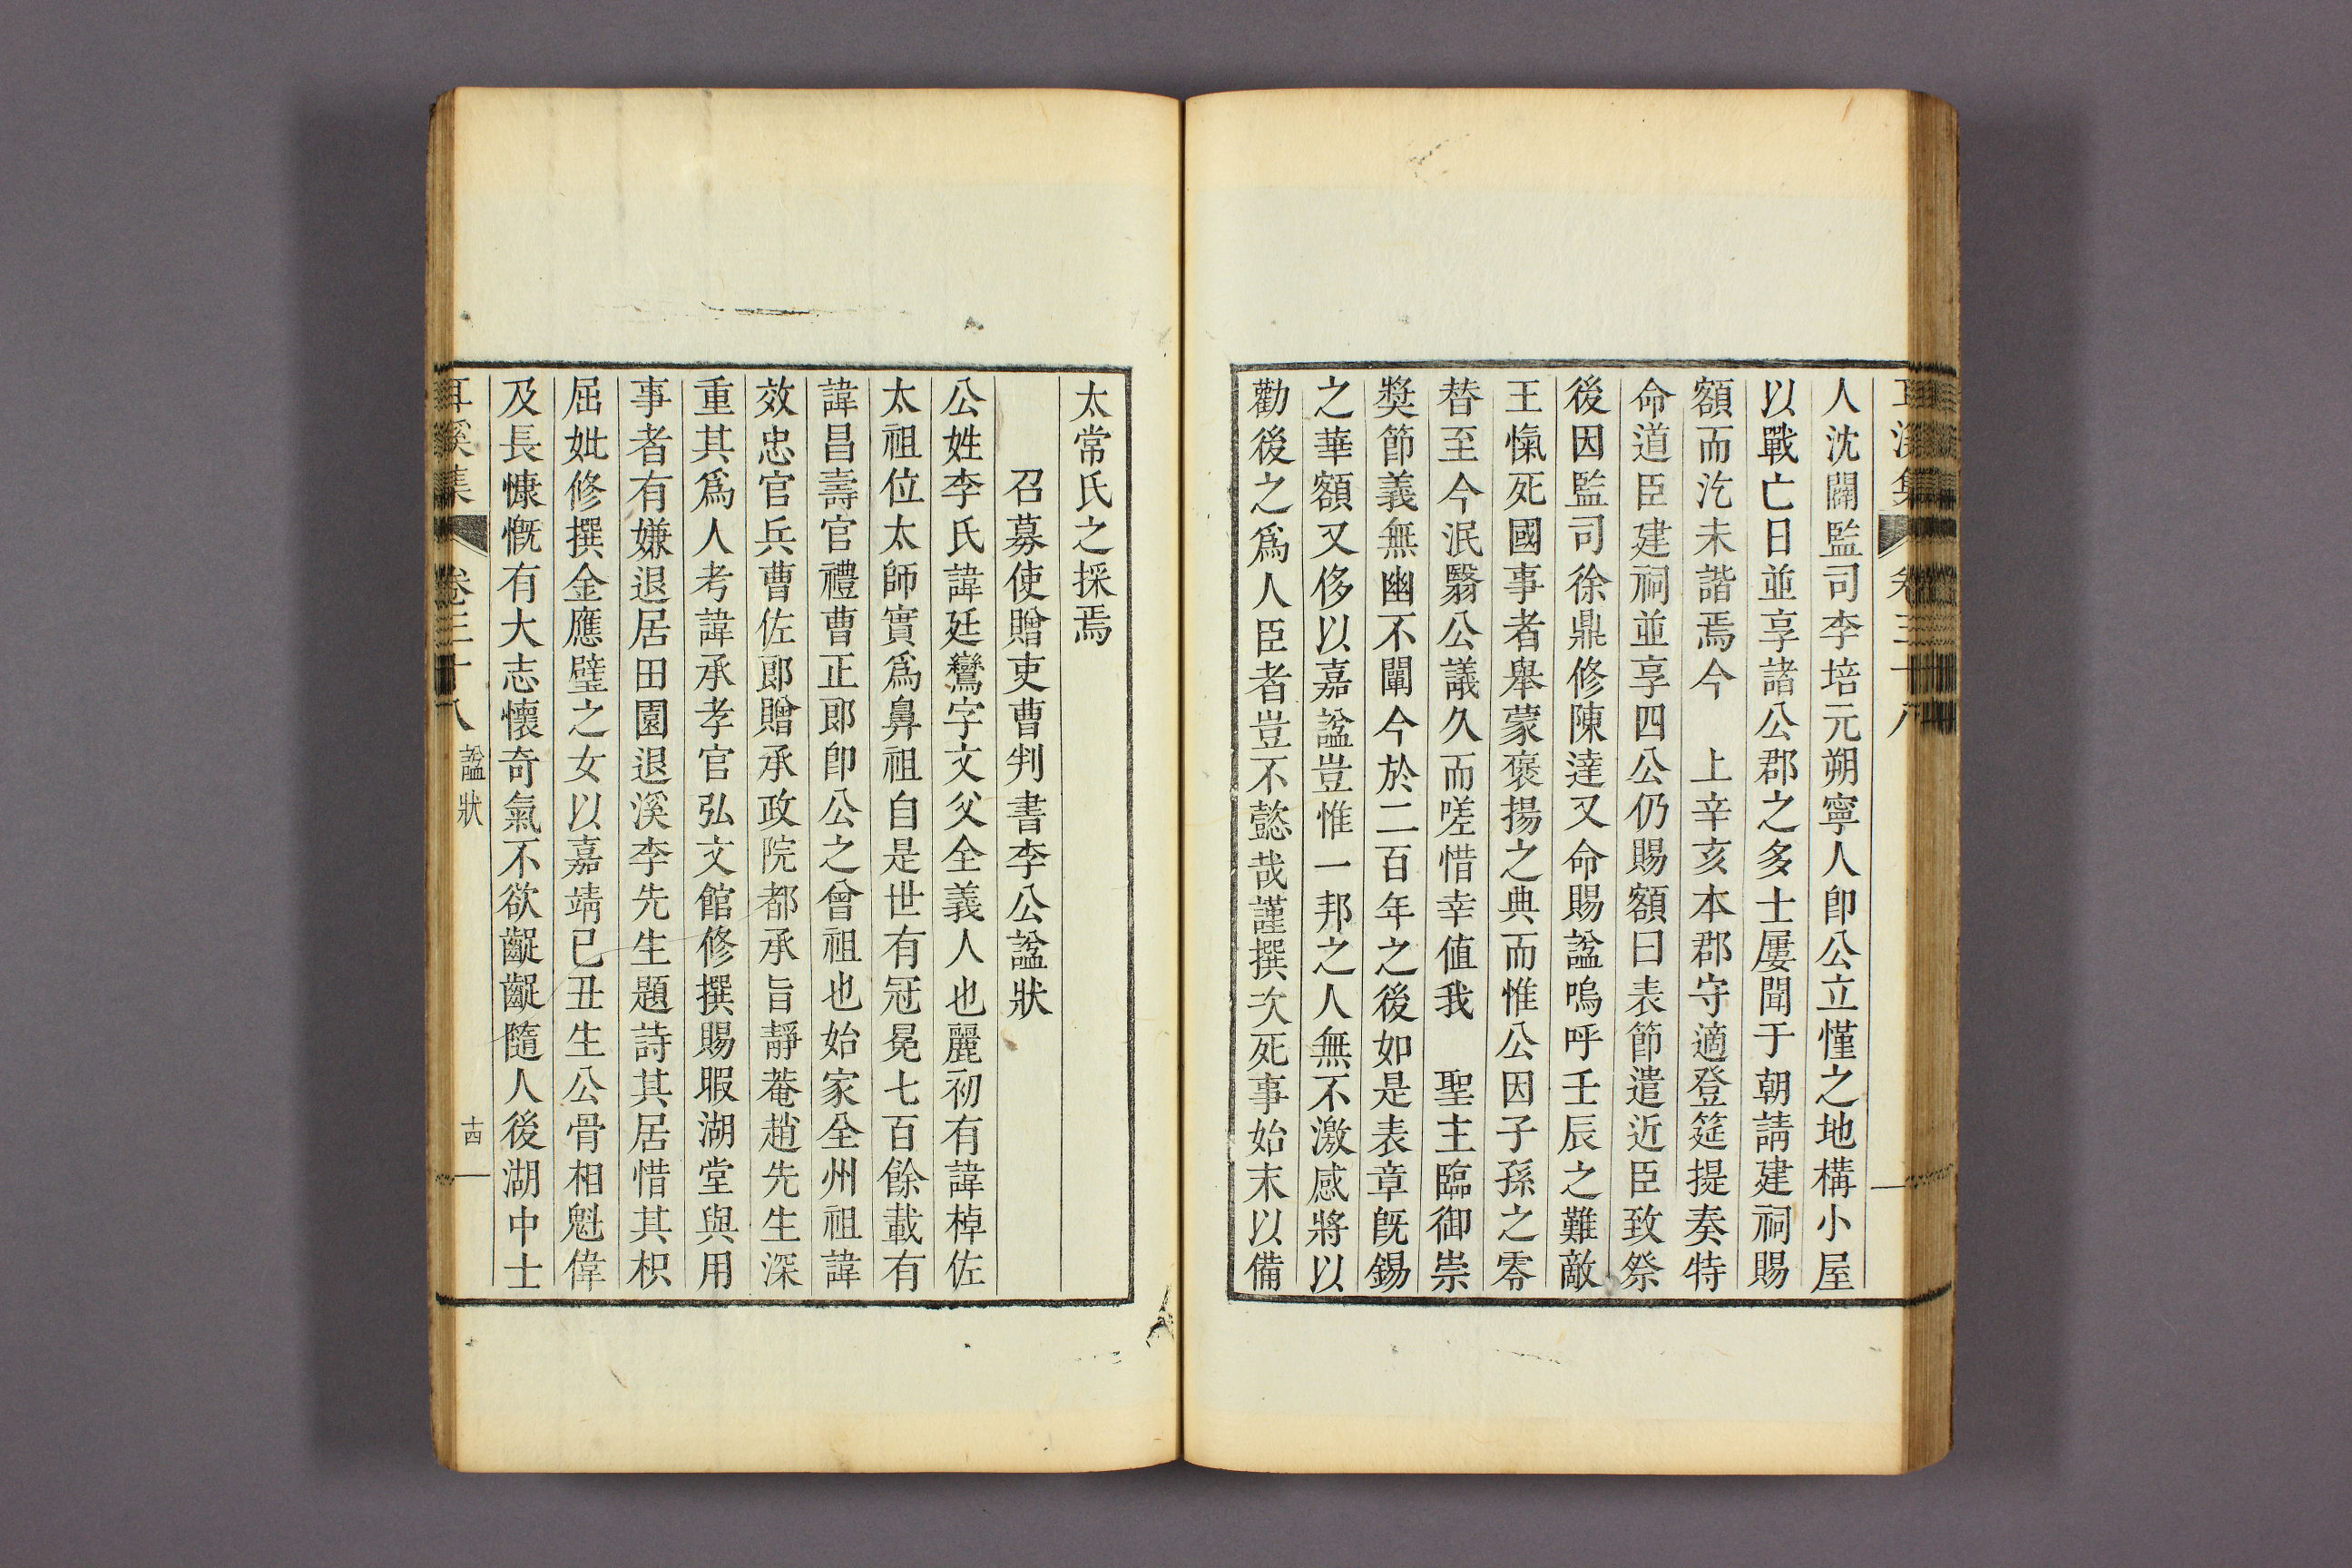 人沈闢監司李培元朔寧人卽公立慬之地構小屋
以戰亡日並享諸公郡之多士屢聞于朝請建祠賜
額而汔未諧焉今　上辛亥本郡守適登筵提奏特
命道臣建祠並享四公仍賜額曰表節遣近臣致祭
後因監司徐鼎修陳達又命賜諡嗚呼壬辰之難敵
王愾死國事者舉蒙褒揚之典而惟公因子孫之零
替至今泯翳公議久而嗟惜幸値我　聖主臨御崇
獎節義無幽不闡今於二百年之後如是表章旣錫
之華額又侈以嘉諡豈惟一邦之人無不激感將以
勸後之爲人臣者豈不懿哉謹撰次死事始末以備
太常氏之採焉
召募使贈吏曹判書李公諡狀
公姓李氏諱廷鸞字文父全義人也麗初有諱棹佐
太祖位太師實爲鼻祖自是世有冠冕七百餘載有
諱昌壽官禮曹正郞卽公之曾祖也始家全州祖諱
效忠官兵曹佐郞贈承政院都承旨靜菴趙先生深
重其爲人考諱承孝官弘文館修撰賜暇湖堂與用
事者有嫌退居田園退溪李先生題詩其居惜其枳
屈妣修撰金應璧之女以嘉靖己丑生公骨相魁偉
及長慷慨有大志懷奇氣不欲齷齪隨人後湖中士
耳溪集　卷三十八　諡狀　十四